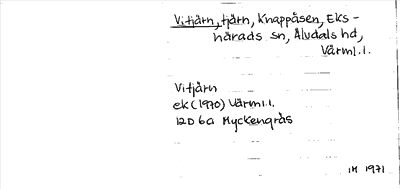 Vitjärn, tjärn, Knappåsen, Eks-
härads sn, Älvdals hd,
Värml.l.
Vitjärn
ek (1970) Värml.l.
12D 6a Myckengrås
IH 1971